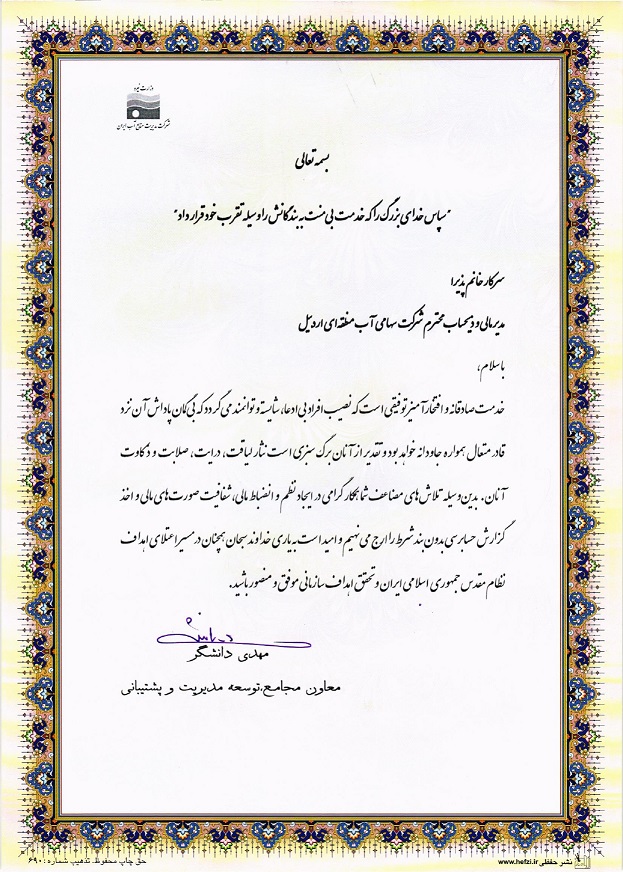 وزارت نیرو
شرکت مدیریت منابع آب ایران
بسمه تعالی
"سپاس خدای بزرگ را که خدمت بی منت به بندگانش را وسیله تقرب خود قرار داد"
سرکار خانم پذیرا
مدیر مالی و ذیحساب محترم شرکت سهامی آب منطقه ای اردبیل
با سلام،
خدمت صادقانه و افتخار آمیز توفیقی است که نصیب افراد بی ادعا، شایسته و توانمند می گردد که بی گمان پاداش آن نزد
قادر متعال همواره جاودانه خواهد بود و تقدیر از آنان برگ سبزی است نثار لیاقت، درایت، صلابت و ذکاوت
آنان. بدین وسیله تلاش های مضاعف شما همکار گرامی در ایجاد نظم و انضباط مالی، شفافیت صورت های مالی و اخذ
گزارش حسابرسی بدون بند شرط را ارج می نهیم و امید است به یاری خداوند سبحان همچنان در مسیر اعتلای اهداف
نظام مقدس جمهوری اسلامی ایران و تحقق اهداف سازمانی موفق و منصور باشید.
مهدی دانشگر
معاون مجامع،توسعه مدیریت و پشتیبانی
نشر حفظی www.hefzi.ir
حق چاپ محفوظ. تذهیب شماره: ۶۹۰